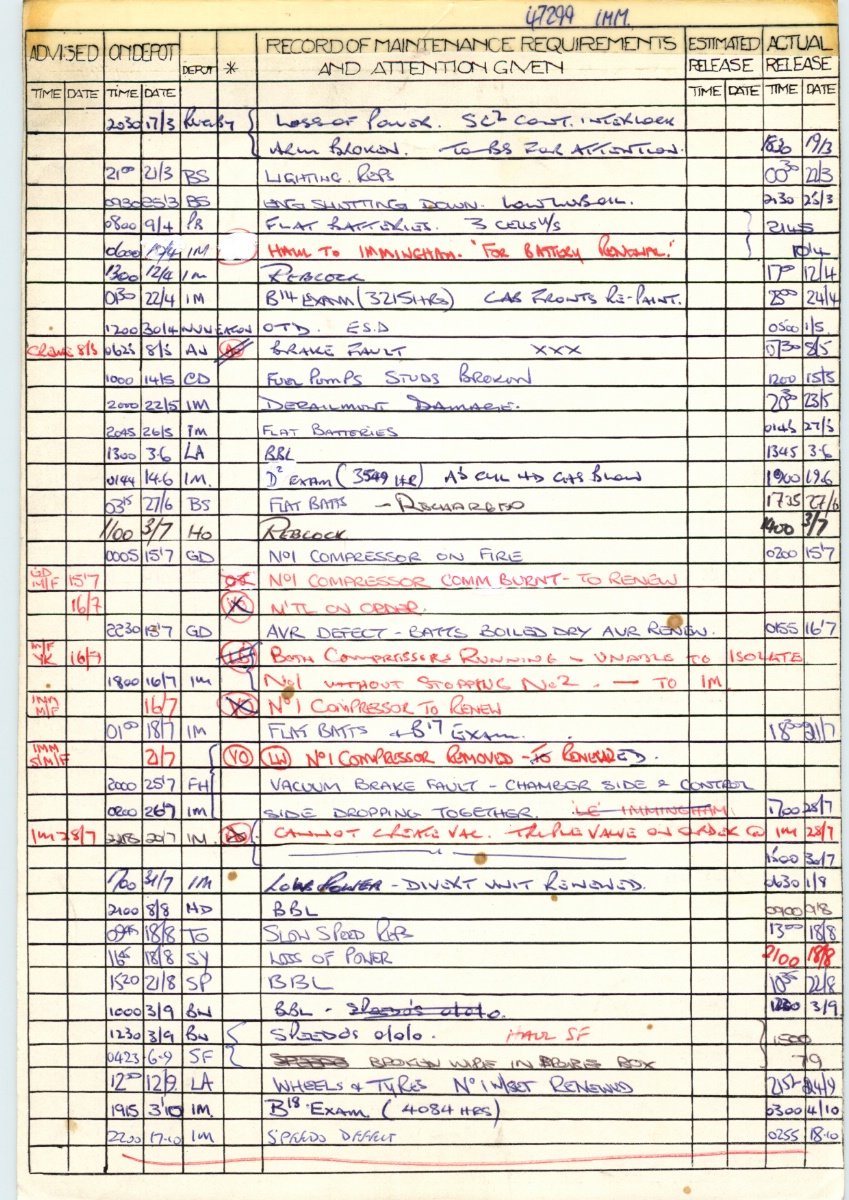 47299 IMM.
ADVISED ON DEPOT DEPOT * RECORD OF MAINTENANCE REQUIREMENTS AND ATTENTION GIVEN ESTIMATED RELEASE ACTUAL RELEASE
TIME DATE TIME DATE TIME DATE TIME DATE
2030 17/3 RUGBY LOSS OF POWER. SC2 CONT. INTERLOCK
ARM BROKEN. TO BS FOR ATTENTION. 19/3
2100 21/3 BS LIGHTING REPS 0030 22/3
0930 25/3 BS ENG SHUTTING DOWN. LOW LUB OIL. 2130 25/3
0800 9/4 PB FLAT BATTERIES. 3 CELLS U/S 2145
0600 IM HAUL TO IMMINGHAM. "FOR BATTERY RENEWAL." 10/4
1300 12/4 IM REBLOCK 1700 12/4
0130 22/4 IM B14 EXAM (3215 HRS) CAB FRONTS RE-PAINT. 24/4
1200 30/4 NUNEATON OTD. E.S.D 0500 1/5
CREWE 8/5 0625 8/5 AN BRAKE FAULT XXX 0730 8/5
1000 14/5 CD FUEL PUMPS STUDS BROKEN 1200 15/5
2000 22/5 IM DERAILMENT DAMAGE. 2030 23/5
2045 26/5 IM FLAT BATTERIES 0145 27/5
1300 3.6 LA BBL 1345 3.6
0144 14.6 IM. D2 EXAM (3549 HR) CYL HD GAS BLOW 1900 19.6
0315 27/6 BS FLAT BATTS - RECHARGED 1735 27/6
1100 3/7 HO REBLOCK 1400 3/7
0005 15'7 GD NO1 COMPRESSOR ON FIRE 0200 15'7
GD M/F 15'7 NO1 COMPRESSOR COMM BURNT - TO RENEW
16/7 M'TL ON ORDER.
2230 15'7 GD AVR DEFECT - BATTS BOILED DRY AVR RENEW. 0155 16'7
M/F YK 16/7 BOTH COMPRESSORS RUNNING - UNABLE TO ISOLATE
1800 16/7 IM NO1 WITHOUT STOPPING NO2. - TO IM
IMM M/F 16/7 NO1 COMPRESSOR TO RENEW
0100 18/7 IM FLAT BATTS & B17 EXAM. 1830 21/7
IMM S/M/F 21/7 VO LN NO1 COMPRESSOR REMOVED - TO RENEWED.
2000 25'7 FH VACUUM BRAKE FAULT - CHAMBER SIDE & CONTROL
0200 26'7 IM SIDE DROPPING TOGETHER. LE IMMINGHAM 1700 28/7
IM 28/7 IM. CANNOT CREATE VAC. TRIPLE VALVE ON ORDER IM 28/7
1500 30/7
1700 31/7 IM LOW POWER - DIVERT UNIT RENEWED. 0630 1/8
2100 8/8 MD BBL 0900 9/8
0945 18/8 TO SLOW SPEED REPS 1300 18/8
18/8 SY LOSS OF POWER 2100 18/8
1520 21/8 SP BBL 1035 22/8
1000 3/9 BW BBL - SPEEDO'S O/O/O. 1230 3/9
1230 3/9 BW SPEEDOS O/O/O. HAUL SF 1500
0423 6-9 SF BROKEN WIRE IN BOX 7/9
1200 12/9 LA WHEELS & TYRES NO1 W/SET RENEWED 24/9
1915 3'10 IM. B18 EXAM (4084 HRS) 0300 4/10
2200 17-10 IM SPEEDO DEFECT 0255 18-10